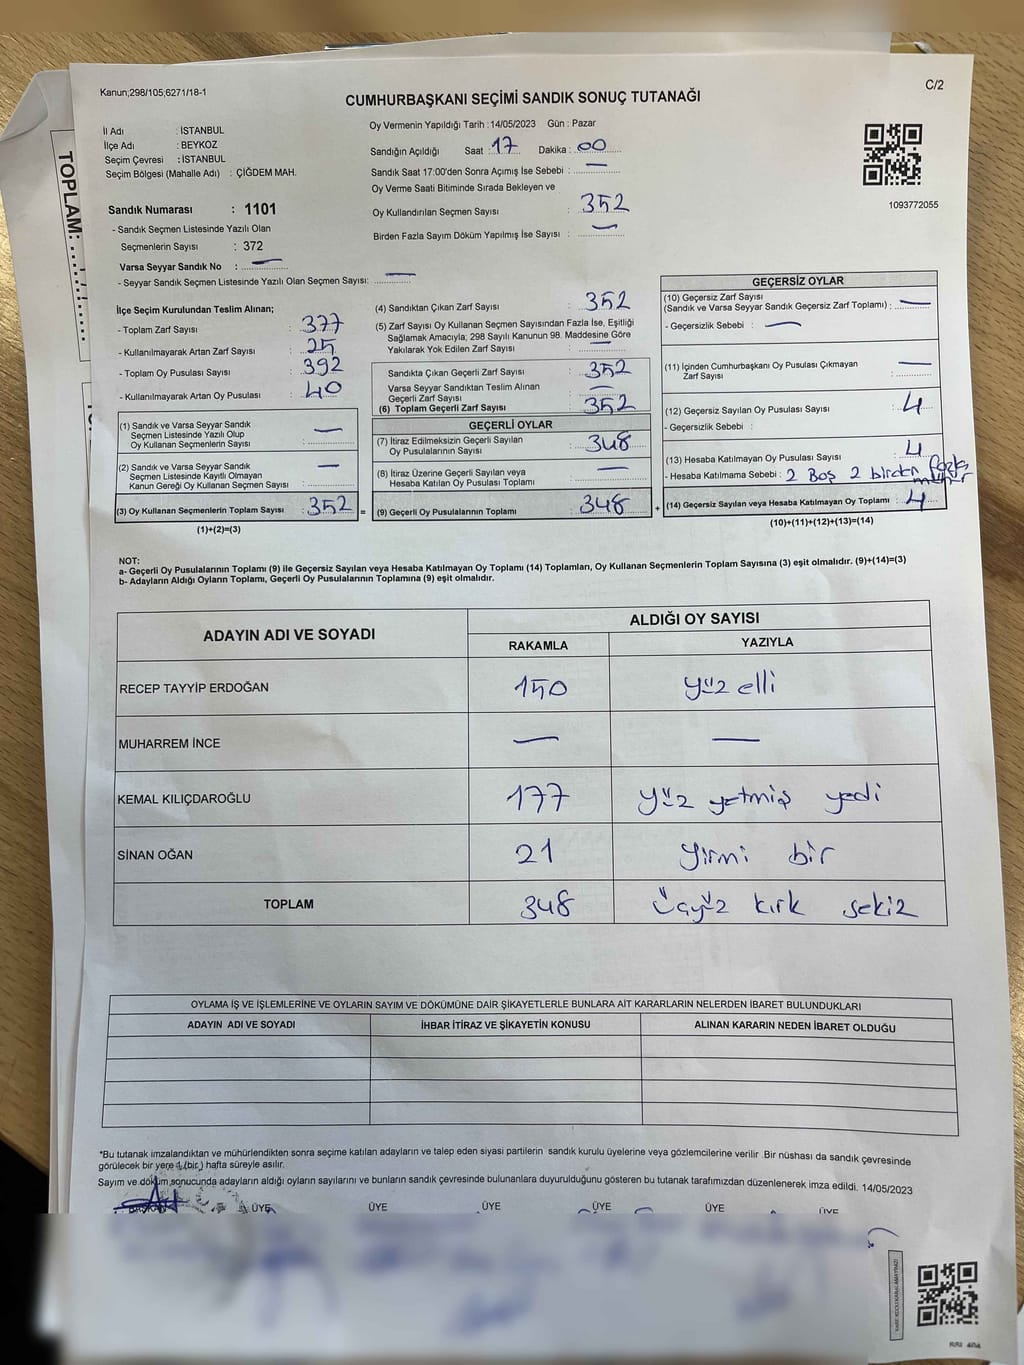 Kanun;298/105;6271/18-1
C/2
CUMHURBAŞKANI SEÇİMİ SANDIK SONUÇ TUTANAĞI
İl Adı : İSTANBUL
İlçe Adı : BEYKOZ
Seçim Çevresi : İSTANBUL
Seçim Bölgesi (Mahalle Adı) : ÇİĞDEM MAH.
Oy Vermenin Yapıldığı Tarih : 14/05/2023 Gün : Pazar
Sandığın Açıldığı Saat : 17 Dakika : 00
Sandık Saat 17:00'den Sonra Açımış İse Sebebi : —
Oy Verme Saati Bitiminde Sırada Bekleyen ve
Oy Kullandırılan Seçmen Sayısı : 352
Birden Fazla Sayım Döküm Yapılmış İse Sayısı : —
1093772055
Sandık Numarası : 1101
- Sandık Seçmen Listesinde Yazılı Olan
Seçmenlerin Sayısı : 372
Varsa Seyyar Sandık No : —
- Seyyar Sandık Seçmen Listesinde Yazılı Olan Seçmen Sayısı: —
İlçe Seçim Kurulundan Teslim Alınan;
- Toplam Zarf Sayısı : 377
- Kullanılmayarak Artan Zarf Sayısı : 25
- Toplam Oy Pusulası Sayısı : 392
- Kullanılmayarak Artan Oy Pusulası : 40
(1) Sandık ve Varsa Seyyar Sandık
Seçmen Listesinde Yazılı Olup
Oy Kullanan Seçmenlerin Sayısı : —
(2) Sandık ve Varsa Seyyar Sandık
Seçmen Listesinde Kayıtlı Olmayan
Kanun Gereği Oy Kullanan Seçmen Sayısı : —
(3) Oy Kullanan Seçmenlerin Toplam Sayısı : 352 =
(1)+(2)=(3)
(4) Sandıktan Çıkan Zarf Sayısı : 352
(5) Zarf Sayısı Oy Kullanan Seçmen Sayısından Fazla İse, Eşitliği
Sağlamak Amacıyla; 298 Sayılı Kanunun 98. Maddesine Göre
Yakılarak Yok Edilen Zarf Sayısı : —
Sandıkta Çıkan Geçerli Zarf Sayısı : 352
Varsa Seyyar Sandıktan Teslim Alınan
Geçerli Zarf Sayısı : —
(6) Toplam Geçerli Zarf Sayısı : 352
GEÇERLİ OYLAR
(7) İtiraz Edilmeksizin Geçerli Sayılan
Oy Pusulalarının Sayısı : 348
(8) İtiraz Üzerine Geçerli Sayılan veya
Hesaba Katılan Oy Pusulası Toplamı : —
(9) Geçerli Oy Pusulalarının Toplamı : 348 +
GEÇERSİZ OYLAR
(10) Geçersiz Zarf Sayısı
(Sandık ve Varsa Seyyar Sandık Geçersiz Zarf Toplamı) : —
- Geçersizlik Sebebi : —
(11) İçinden Cumhurbaşkanı Oy Pusulası Çıkmayan
Zarf Sayısı : —
(12) Geçersiz Sayılan Oy Pusulası Sayısı : 4
- Geçersizlik Sebebi :
(13) Hesaba Katılmayan Oy Pusulası Sayısı : 4
- Hesaba Katılmama Sebebi : 2 Boş 2 birden fazla mühür
(14) Geçersiz Sayılan veya Hesaba Katılmayan Oy Toplamı : 4
(10)+(11)+(12)+(13)=(14)
NOT:
a- Geçerli Oy Pusulalarının Toplamı (9) ile Geçersiz Sayılan veya Hesaba Katılmayan Oy Toplamı (14) Toplamları, Oy Kullanan Seçmenlerin Toplam Sayısına (3) eşit olmalıdır. (9)+(14)=(3)
b- Adayların Aldığı Oyların Toplamı, Geçerli Oy Pusulalarının Toplamına (9) eşit olmalıdır.
ADAYIN ADI VE SOYADI
ALDIĞI OY SAYISI
RAKAMLA YAZIYLA
RECEP TAYYİP ERDOĞAN 150 yüz elli
MUHARREM İNCE — —
KEMAL KILIÇDAROĞLU 177 yüz yetmiş yedi
SİNAN OĞAN 21 yirmi bir
TOPLAM 348 üçyüz kırk sekiz
OYLAMA İŞ VE İŞLEMLERİNE VE OYLARIN SAYIM VE DÖKÜMÜNE DAİR ŞİKAYETLERLE BUNLARA AİT KARARLARIN NELERDEN İBARET BULUNDUKLARI
ADAYIN ADI VE SOYADI İHBAR İTİRAZ VE ŞİKAYETİN KONUSU ALINAN KARARIN NEDEN İBARET OLDUĞU
*Bu tutanak imzalandıktan ve mühürlendikten sonra seçime katılan adayların ve talep eden siyasi partilerin sandık kurulu üyelerine veya gözlemcilerine verilir .Bir nüshası da sandık çevresinde
görülecek bir yere 1 (bir) hafta süreyle asılır.
Sayım ve döküm sonucunda adayların aldığı oyların sayılarını ve bunların sandık çevresinde bulunanlara duyurulduğunu gösteren bu tutanak tarafımızdan düzenlenerek imza edildi. 14/05/2023
BAŞKAN ÜYE ÜYE ÜYE ÜYE ÜYE ÜYE
TOPLAM: